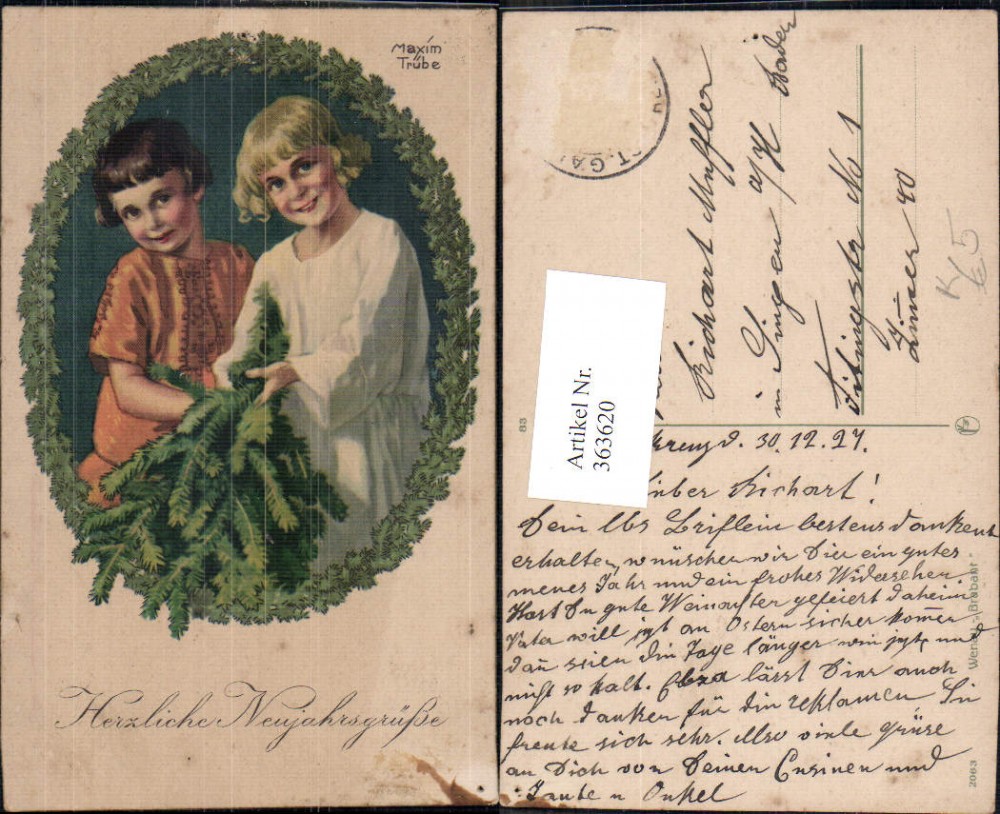 Maxim
Trübe
Herzliche Neujahrsgrüße
ST. GAL
Richart Muffler
in Singen a/H Baden
No 1
Zimmer 40
K 5
83
Artikel Nr.
363620
kreuzd. 30.12.27.
lieber Richart!
Dein lbs Brieflein bestens dankend
erhalten, wünschen wir Dier ein gutes
neues Jahr und ein frohes Widersehen
Hast Du gute Weinachten gefeiert daheim
Vater will jzt an Ostern sicher kommen
dan seien die Tage länger wie jezt und
nicht so kalt. lässt Dier auch
noch danken für die reklamen, Sie
freute sich sehr. Also viele grüse
an Dich von Deinen Cusinen und
Tante u Onkel
Brabant
2063